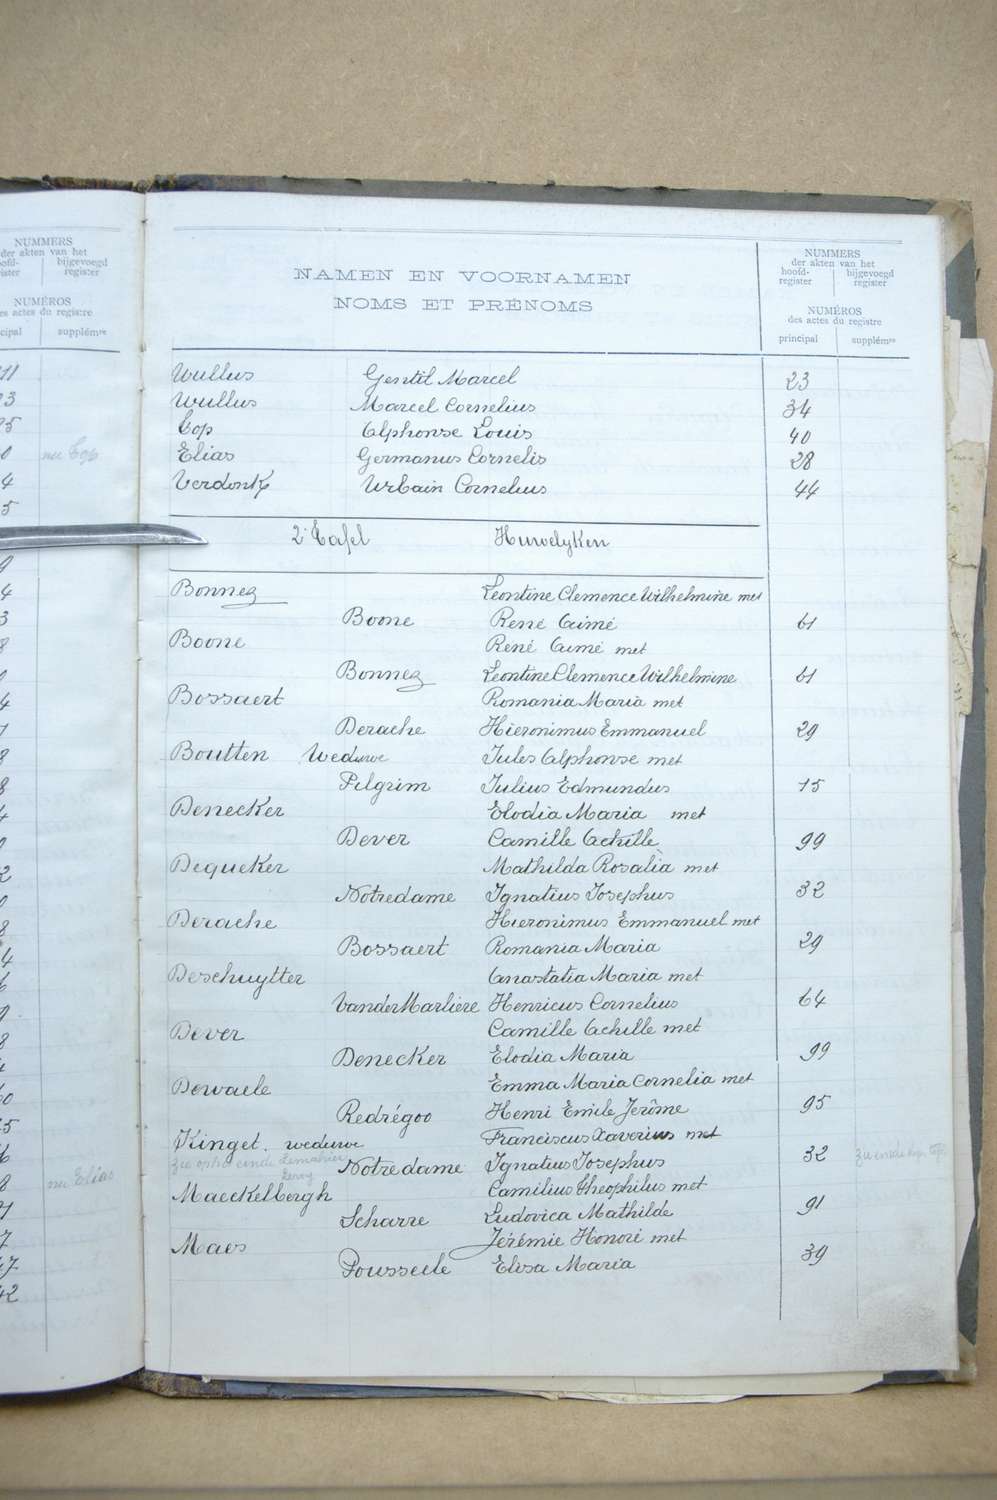 NUMMERS
der akten van het
hoofd- bijgevoegd
register register
NUMÉROS
des actes du registre
cipal supplém^re
11
23
25
0 nu Cop
4
5
9
4
3
8
nu Elias
47
42
NAMEN EN VOORNAMEN
NOMS ET PRÉNOMS
NUMMERS
der akten van het
hoofd- bijgevoegd
register register
NUMÉROS
des actes du registre
principal supplém^re
Wullus Gentil Marcel 23
Wullus Marcel Cornelius 34
Cop Alphonse Louis 40
Elias Germanus Cornelis 28
Verdonk Urbain Cornelius 44
2e Tafel Huwelyken
Bonnez Leontine Clemence Wilhelmine met
Boone René Aimé 61
Boone René Aimé met
Bonnez Leontine Clemence Wilhelmine 61
Bossaert Romania Maria met
Derache Hieronimus Emmanuel 29
Boutten Weduwe Jules Alphonse met
Pilgrim Julius Edmundus 15
Denecker Elodia Maria met
Dever Camille Achille 99
Dequeker Mathilda Rosalia met
Notredame Ignatius Josephus 32
Derache Hieronimus Emmanuel met
Bossaert Romania Maria 29
Deschuytter Anastatia Maria met
VanderMarliere Henricus Cornelius 64
Dever Camille Achille met
Denecker Elodia Maria 99
Dewaele Emma Maria Cornelia met
Redrégoo Henri Emile Jerôme 95
Kinget. weduwe Franciscus Xaverius met
zie op het einde Lemahieu
Leroy
Notredame Ignatius Josephus 32
Maeckelbergh Camilius Theophilus met
Scharre Ludovica Mathilde 91
Maes Jérémie Honoré met
Pousseele Elisa Maria 39